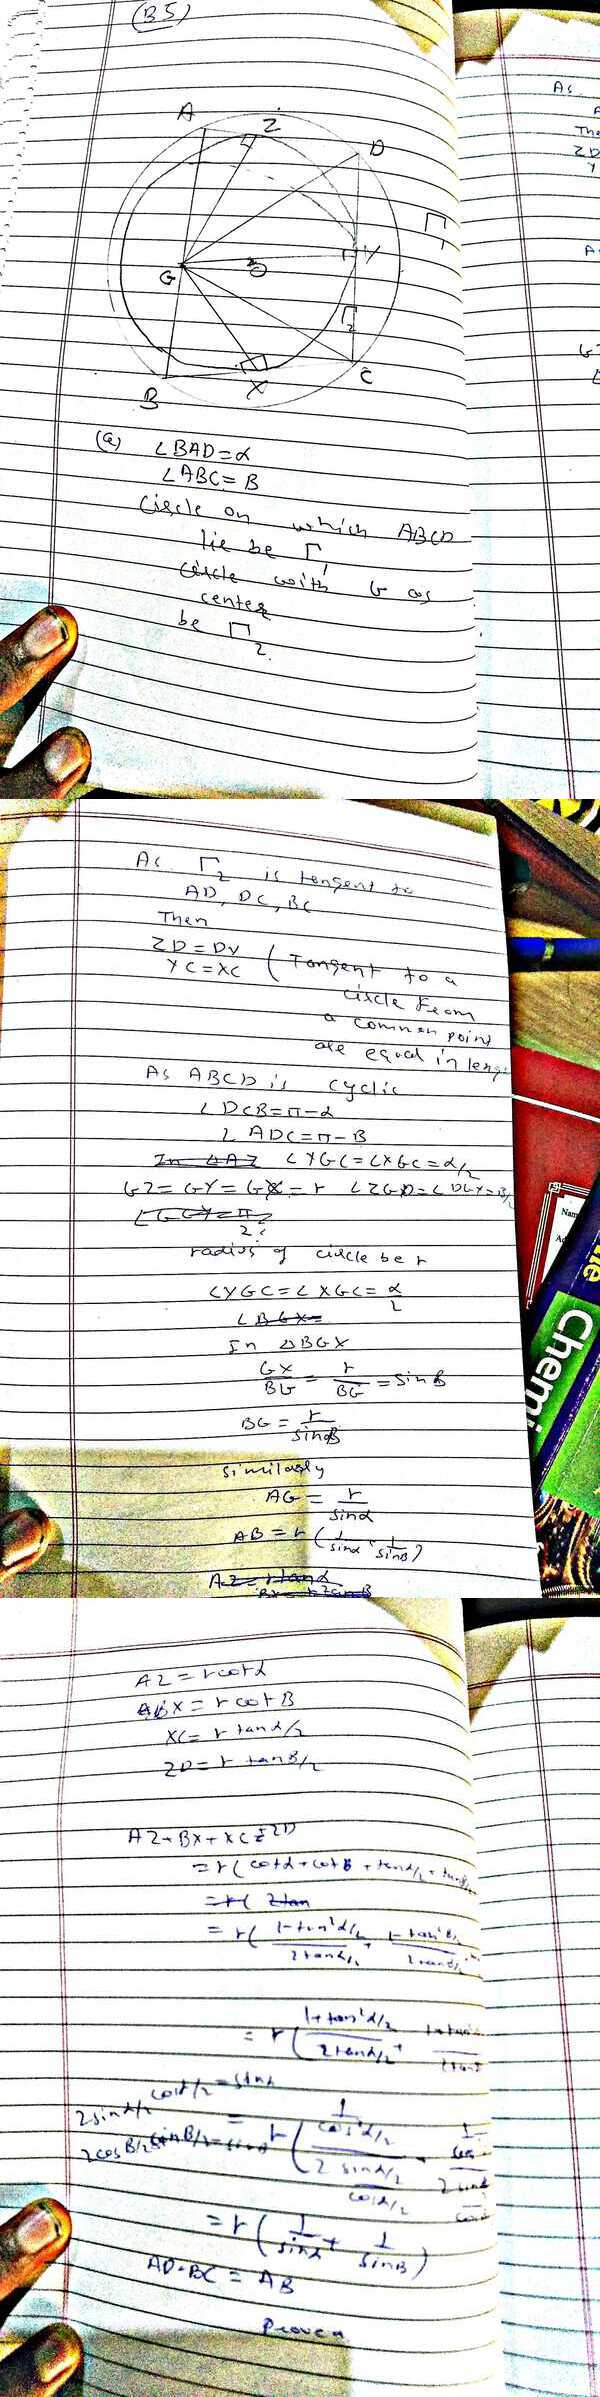 (B5)
A
Z
D
Γ1
G
O
Y
Γ2
B
X
C
(a) ∠BAD=α
∠ABC=B
Circle on which ABCD
lie be Γ1
circle with G as
center
be Γ2.
As
A
The
ZD
Y
As Γ2 is tangent to
AD, DC, BC
Then
ZD=DY
YC=XC (Tangent to a
circle from
a common point
are equal in leng
As ABCD is cyclic
∠DCB=π-α
∠ADC=π-B
In ΔAZ ∠YGC=∠XGC=α/2
GZ=GY=GX=r ∠ZGD=∠DGY=B/2
radius of circle be r
∠YGC=∠XGC=α/2
∠BGX=
In ΔBGX
GX/BG = r/BG = sinB
BG = r/sinB
similarly
AG = r/sinα
AB = r(1/sinα + 1/sinB)
AZ = r tanα
AZ = r cotα
BX = r cotB
XC = r tanα/2
ZD = r tanB/2
AZ+BX+XC+ZD
= r(cotα+cotB+tanα/2+tan
= r( 2tan
= r( 1-tan²α/2 / 2tanα/2 + 1-tan²B/2 / 2tanB/2
= r( 1+tan²α/2 / 2tanα/2 +
2sinα/2 cosα/2 = sinα
2cosB/2 sinB/2 = sinB
= r( 1/cos²α/2 / 2 sinα/2 / cosα/2
= r(1/sinα + 1/sinB)
AD+BC = AB
Proved
Name
Chemi